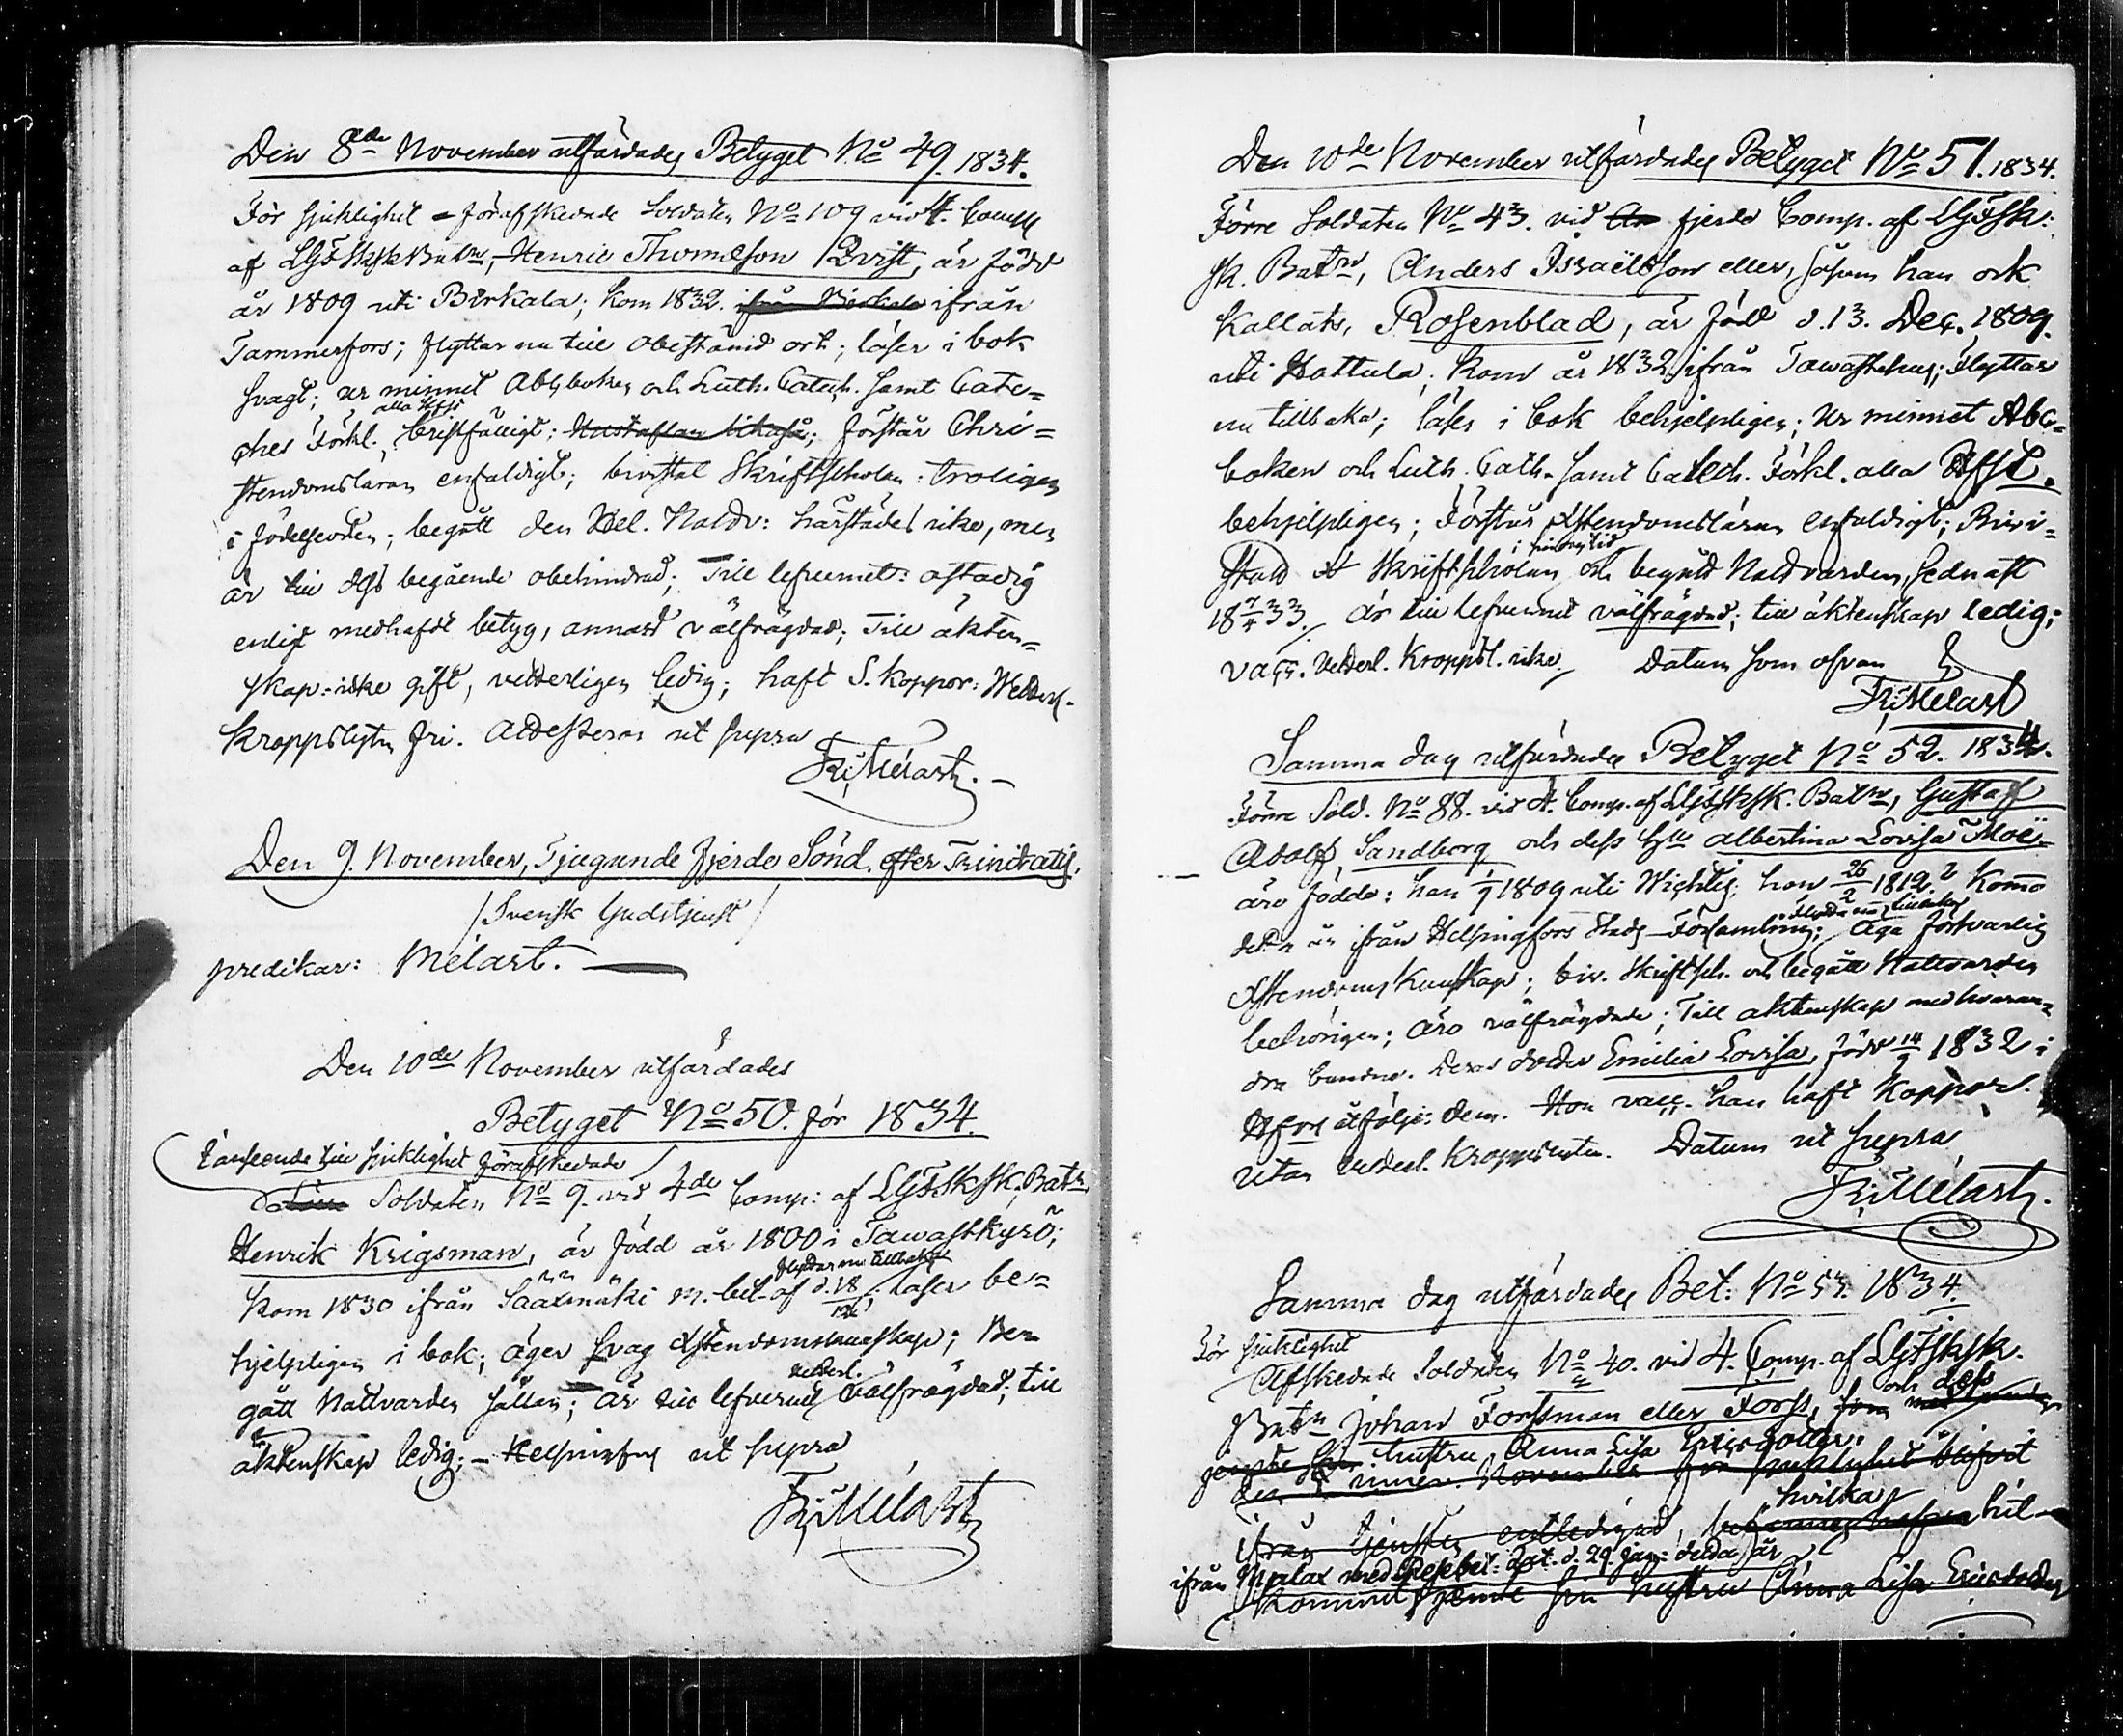 Den 8de November utfärdades Betyget No 49. 1834.
För sjuklighet förafskedade Soldaten No 109 vid 4. Comp
af LGdSkskBatn, Henric Thomsson Qvist, är född
år 1809 uti Birkala; kom 1832. ifrån Birkala ifrån
Tammerfors; flyttar nu till obestämd ort; läser i bok
svagt; ur minnet Abcboken och Luth. Catech. samt Cate=
alla Hfst
ches Förkl. bristfälligt; Hustaflan likaså; förstår Chri=
stendomsläran enfaldigt; bivistat Skriftskolan: troligen
i födelseorten; begått den Hel. Nattv: härstädes icke, men
är till dess begående obehindrad; Till lefvernet: ostadig
enligt medhafdt betyg, annars välfrägdad; Till äkten=
skap: icke gift, veterligen ledig; haft S. koppor: Vederl.
kroppslyten fri. Aldesteras ut supra
Fr: Melart.
Den 9. November, Tjugunde fjerde Sönd. efter Trinitatis.
/Svensk Gudstjenst/
predikar: Melart.
Den 10de November utfärdades
Betyget No 50. för 1834.
i anseende till sjuklighet förafskedade
Soldaten No 9. vid 4de Comp: af LGdSkSk. Batn,
Henrik Krigsman, är född år 1800 i Tawastkyrö;
flyttar nu tillbaka
kom 1830 ifrån Sääxmäki m. bet. af d. 18; läser be=
hjelpligen i bok; äger svag Xstendomskunskap; Be=
vederl.
gått Nattvarden sällan; är till lefvernet välfrägdad; till
äktenskap ledig; – Helsingfors ut supra
Fr: Melart
Den 10de November utfärdades Betyget No 51. 1834.
Förre Soldaten No 43. vid fjerde Comp. af LGdSk:
sk. Batn, Anders Israëlsson eller, såsom han ock
kallats, Rosenblad, är född d. 13. Dec. 1809.
uti Hattula; kom år 1832 ifrån Tawastehus; Flyttar
nu tillbaka; läser i bok behjelpligen; Ur minnet Abc=
boken och Luth. Cath. samt Catech. Förkl. alla Hfst.
behjelpligen; Förstår Xstendomsläran enfaldigt; Bivi=
i sinom tid
stad Skriftskolan och begått Nattvarden, sednast
18 7/4 33. är till lefvernet välfrägdad; till äktenskap ledig;
vacc. vederl. kroppsl. icke. Datum som ofvan
Fr: Melart
Samma dag utfärdades Betyget No 52. 1834.
Förre Sold. No 88. vid 4. Comp. af LGdSkSk. Batn, Gustaf
Adolf Sandborg och dess h:u Albertina Lovisa Moë-
äro födde: han 1/9 1809 uti Wichtis; hon 26/2 1812. Komo
flytta nu tillbaka
detta år ifrån Helsingfors Stads Församling; Äga försvarlig
Xstendomskunskap; biv. Skriftsk. och begått Nattvarden
behörigen; äro välfrägdade; Till äktenskap med hvaran=
dra bundne. Deras dotter Emilia Lovisa, född 14/9 1832 i
Hfors åtföljer dem. Hon vacc. han haft koppor.
Utan vederl. kroppslyten. Datum ut supra
Fr: Melart.
Samma dag utfärdades Bet: No 53. 1834.
För sjuklighet
Afskedade Soldaten No 40. vid 4. Comp. af LGdSkSk.
och dess
Batn Johan Forssman eller Forss, som med
hustru, Anna Lisa Ericsdotter.
den innev. November för sjuklighet blifvit
hvilka
ifrån tjensten entledigad, hit
ifrån Malax med Prestbet: dat. d. 29. Jan: detta år
kommit jemte sin hustru Anna Lisa Ericsdotter